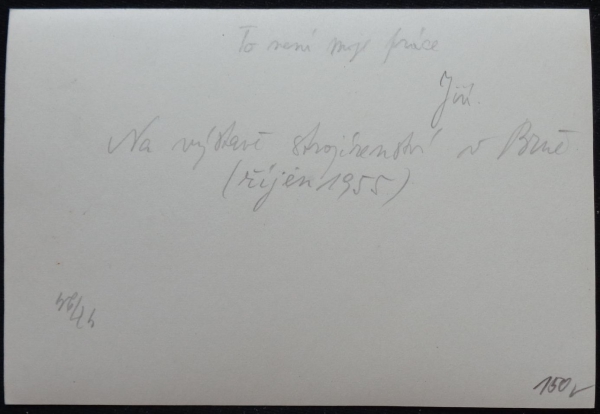 To není moje práce
Jiří.
Na výstavě strojírenství v Brně
(říjen 1955)
150,-